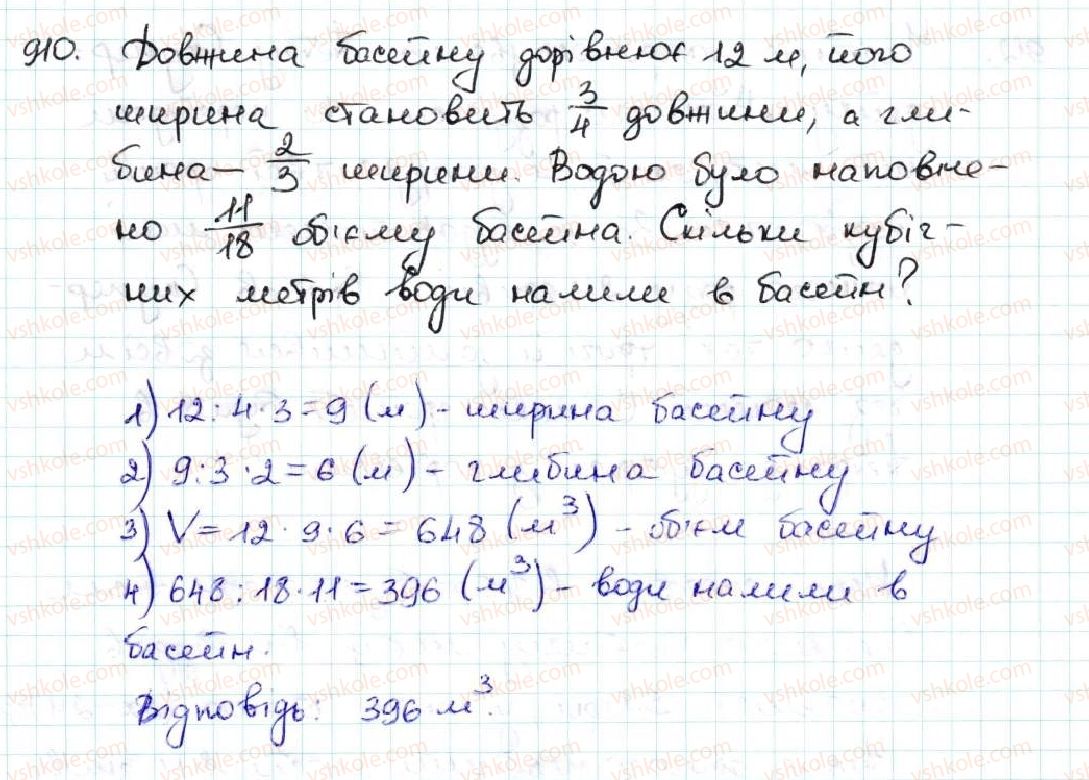 910. Довжина басейну дорівнює 12 м, його
ширина становить 3/4 довжини, а гли-
бина – 2/3 ширини. Водою було наповне-
но 11/18 об'єму басейна. Скільки кубіч-
них метрів води налили в басейн?
1) 12 : 4 · 3 = 9 (м) - ширина басейну
2) 9 : 3 · 2 = 6 (м) - глибина басейну
3) V = 12 · 9 · 6 = 648 (м³) - об'єм басейну
4) 648 : 18 · 11 = 396 (м³) - води налили в
басейн.
Відповідь: 396 м³.